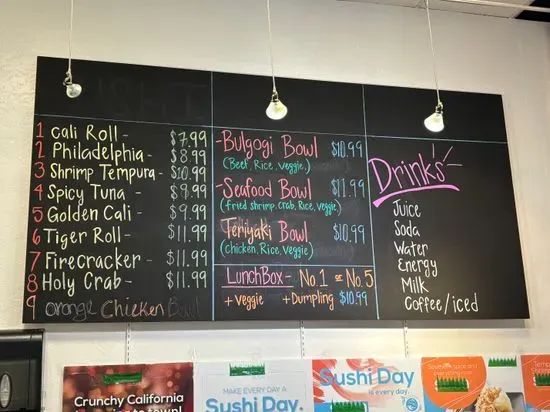 1 Cali Roll - $7.99
2 Philadelphia - $8.99
3 Shrimp Tempura - $10.99
4 Spicy Tuna - $9.99
5 Golden Cali - $9.99
6 Tiger Roll - $11.99
7 Firecracker - $11.99
8 Holy Crab - $11.99
9 Orange Chicken Bowl
- Bulgogi Bowl $10.99
(Beef, Rice, Veggie.)
- Seafood Bowl $11.99
(fried shrimp, crab, Rice, veggie,)
Teriyaki Bowl $10.99
(chicken, Rice, Veggie)
LunchBox - No.1 or No.5
+ Veggie + Dumpling $10.99
Drinks
Juice
Soda
Water
Energy
Milk
Coffee/iced
Crunchy California
MAKE EVERY DAY A
Sushi Day.
Sushi Day
is every day.